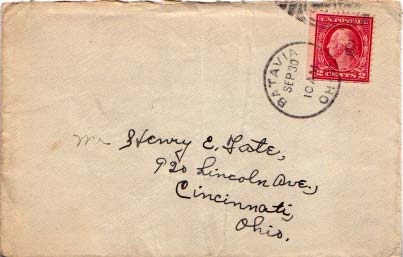 U.S. POSTAGE
2 CENTS 2
BATAVIA
SEP 30
10 AM
OHIO
Mr Henry E. Fate,
920 Lincoln Ave.,
Cincinnati,
Ohio.